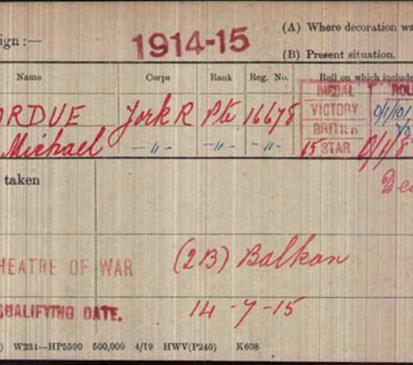 ign :—
1914-15
(A) Where decoration wa
(B) Present situation.
Name Corps Rank Reg. No. Roll on which include
MEDAL ROL
ORDUE York R Pte 16678 VICTORY 0/1/01
BRITISH
Michael -"- -"- -"- 15 STAR
taken
HEATRE OF WAR (2B) Balkan
QUALIFYING DATE. 14-7-15
W234—HP5590 500,000 4/19 HWV(P240) K608